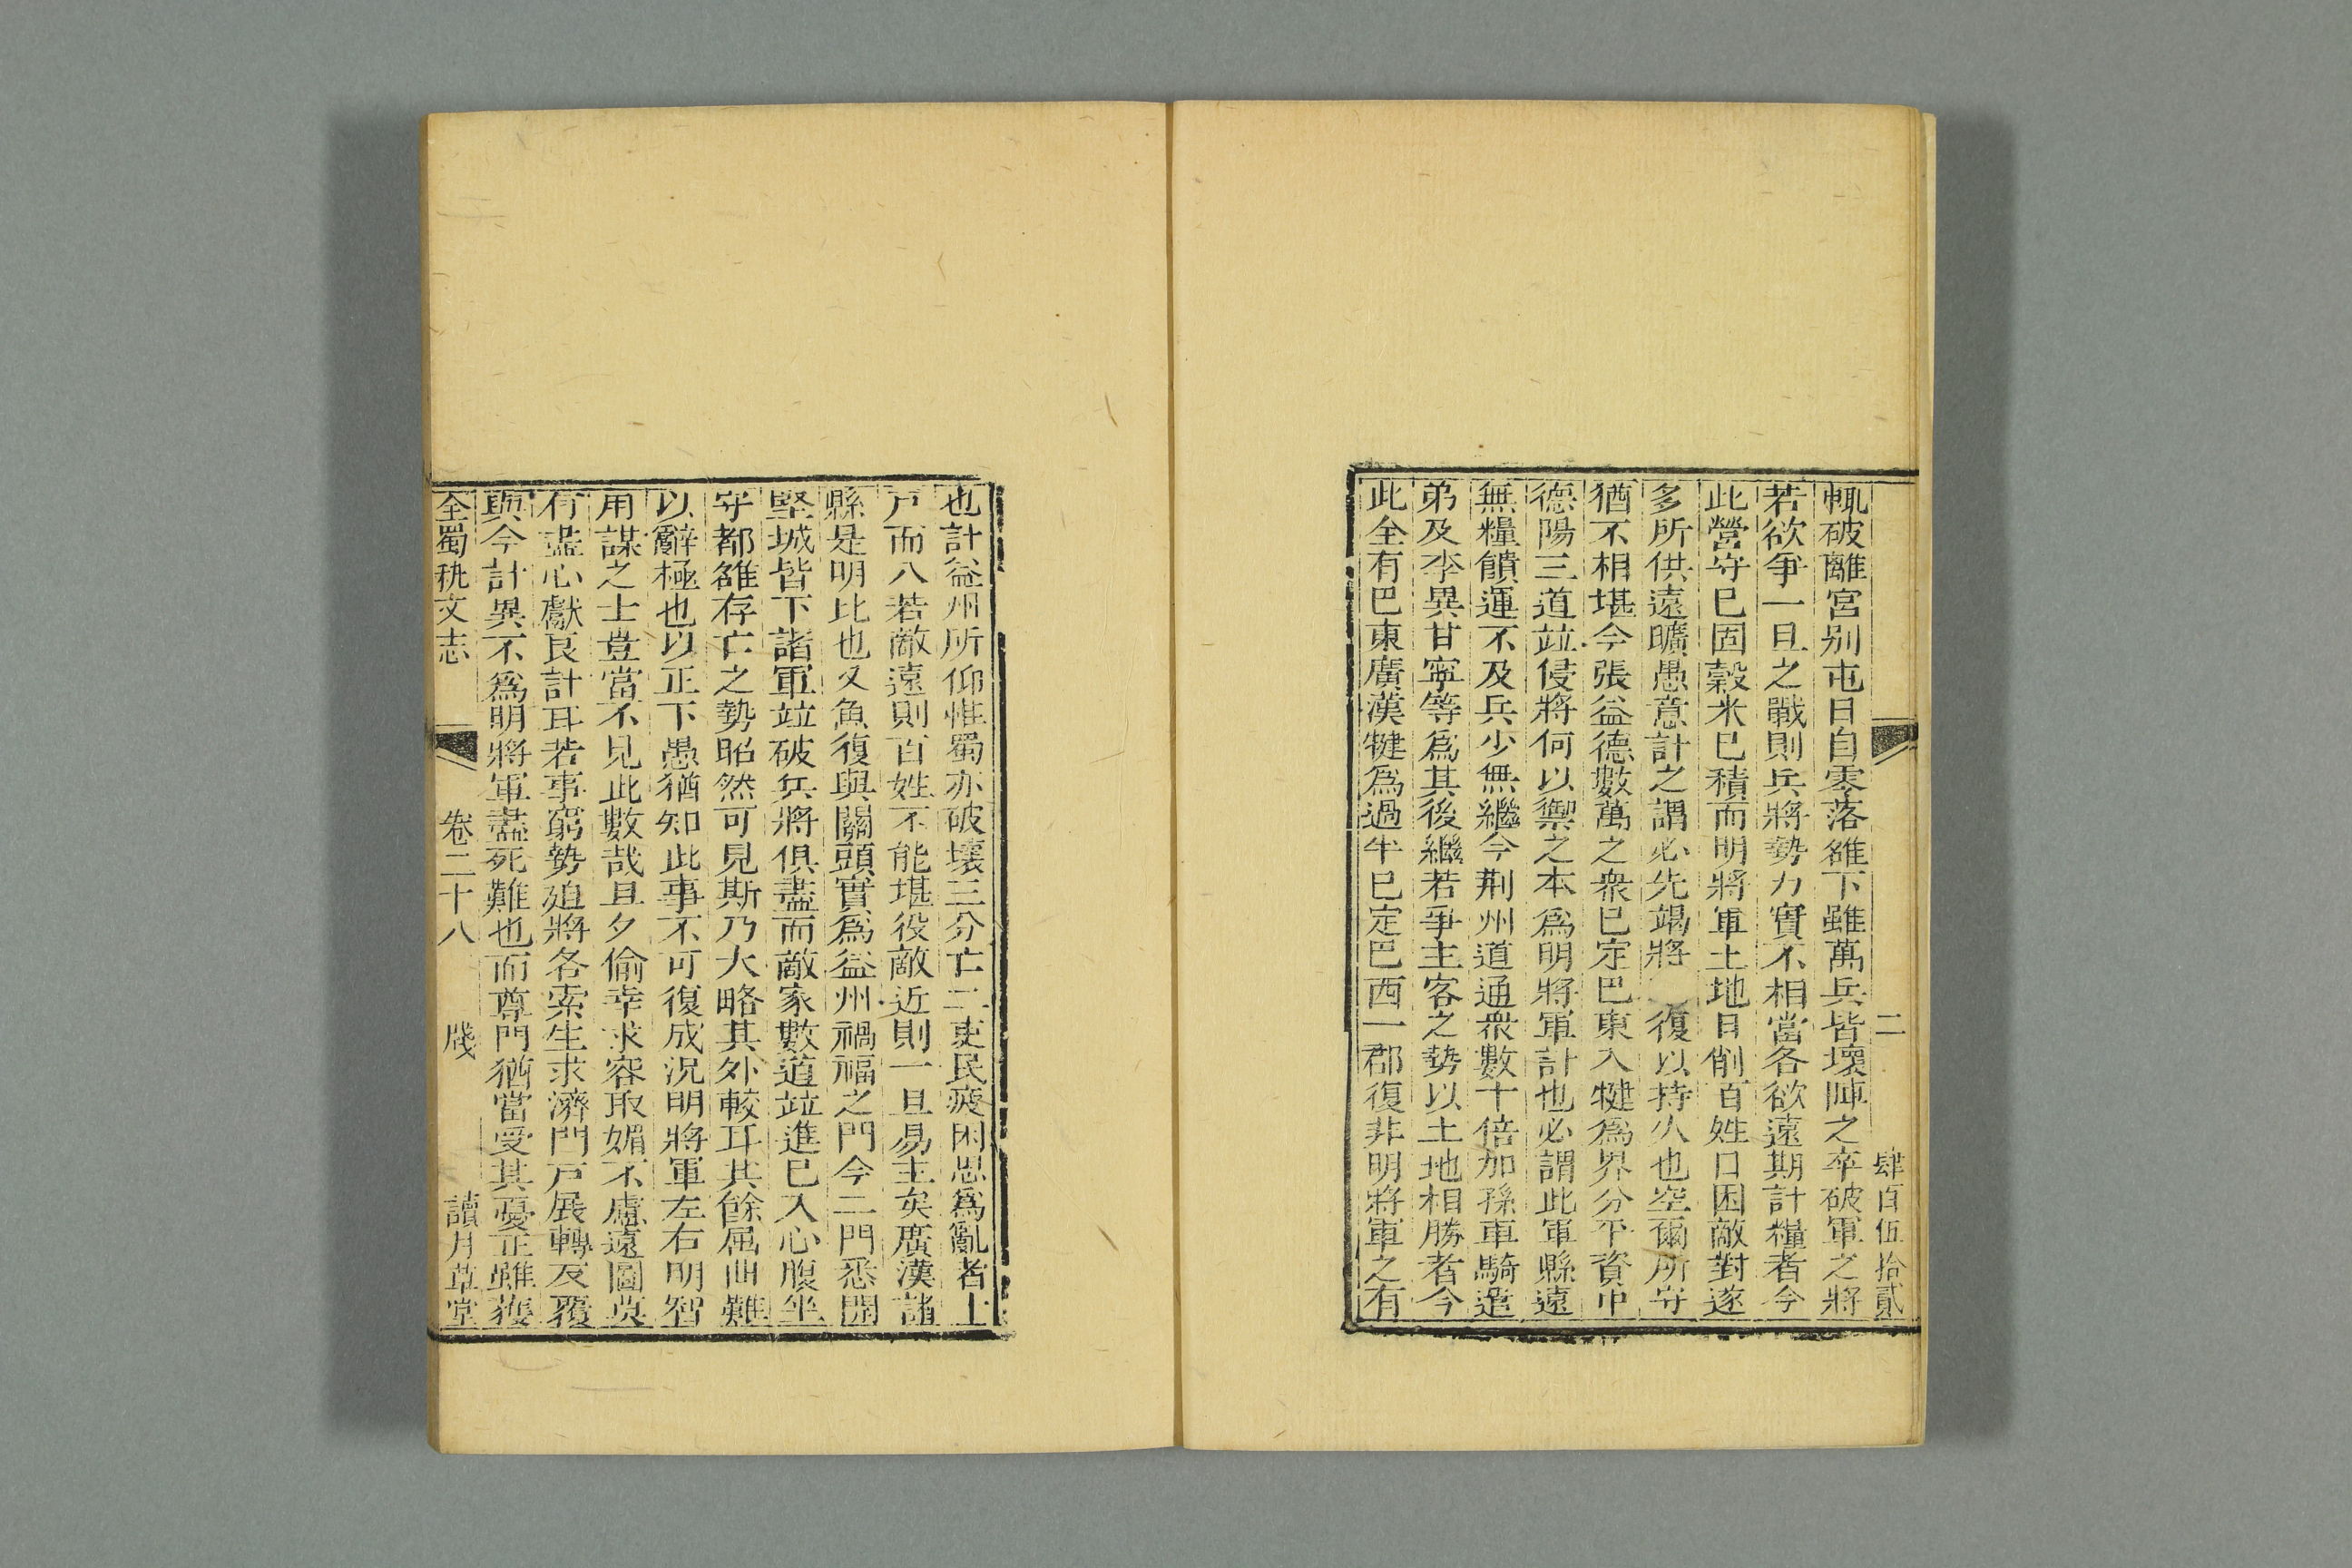 二 肆百伍拾貳
輒破離宮别屯日自零落雒下雖萬兵皆壞陣之卒破軍之將
若欲爭一旦之戰則兵將勢力實不相當各欲遠期計糧者今
此營守已固穀米已積而明將軍土地日削百姓日困敵對遂
多所供遠曠愚意計之謂必先竭將 復以持久也空爾所守
猶不相堪今張益德數萬之衆已定巴東入犍爲界分平資中
德陽三道竝侵將何以禦之本爲明將軍計也必謂此軍縣遠
無糧饋運不及兵少無繼今荆州道通衆數十倍加孫車騎遣
弟及李異甘寧等爲其後繼若爭主客之勢以土地相勝者今
此全有巴東廣漢犍爲過半已定巴西一郡復非明將軍之有
也計益州所仰惟蜀亦破壞三分亡二吏民疲困思爲亂者十
戸而八若敵遠則百姓不能堪役敵近則一旦易主矣廣漢諸
縣是明比也又魚復與關頭實爲益州禍福之門今二門悉開
堅城皆下諸軍竝破兵將俱盡而敵家數道竝進已入心腹坐
守都雒存亡之勢昭然可見斯乃大略其外較耳其餘屈曲難
以辭極也以正下愚猶知此事不可復成況明將軍左右明智
用謀之士豈當不見此數哉旦夕偷幸求容取媚不慮遠圖莫
有盡心獻良計耳若事窮勢迫將各索生求濟門戸展轉反覆
與今計異不爲明將軍盡死難也而尊門猶當受其憂正雖獲
全蜀秇文志 卷二十八 牋 讀月草堂